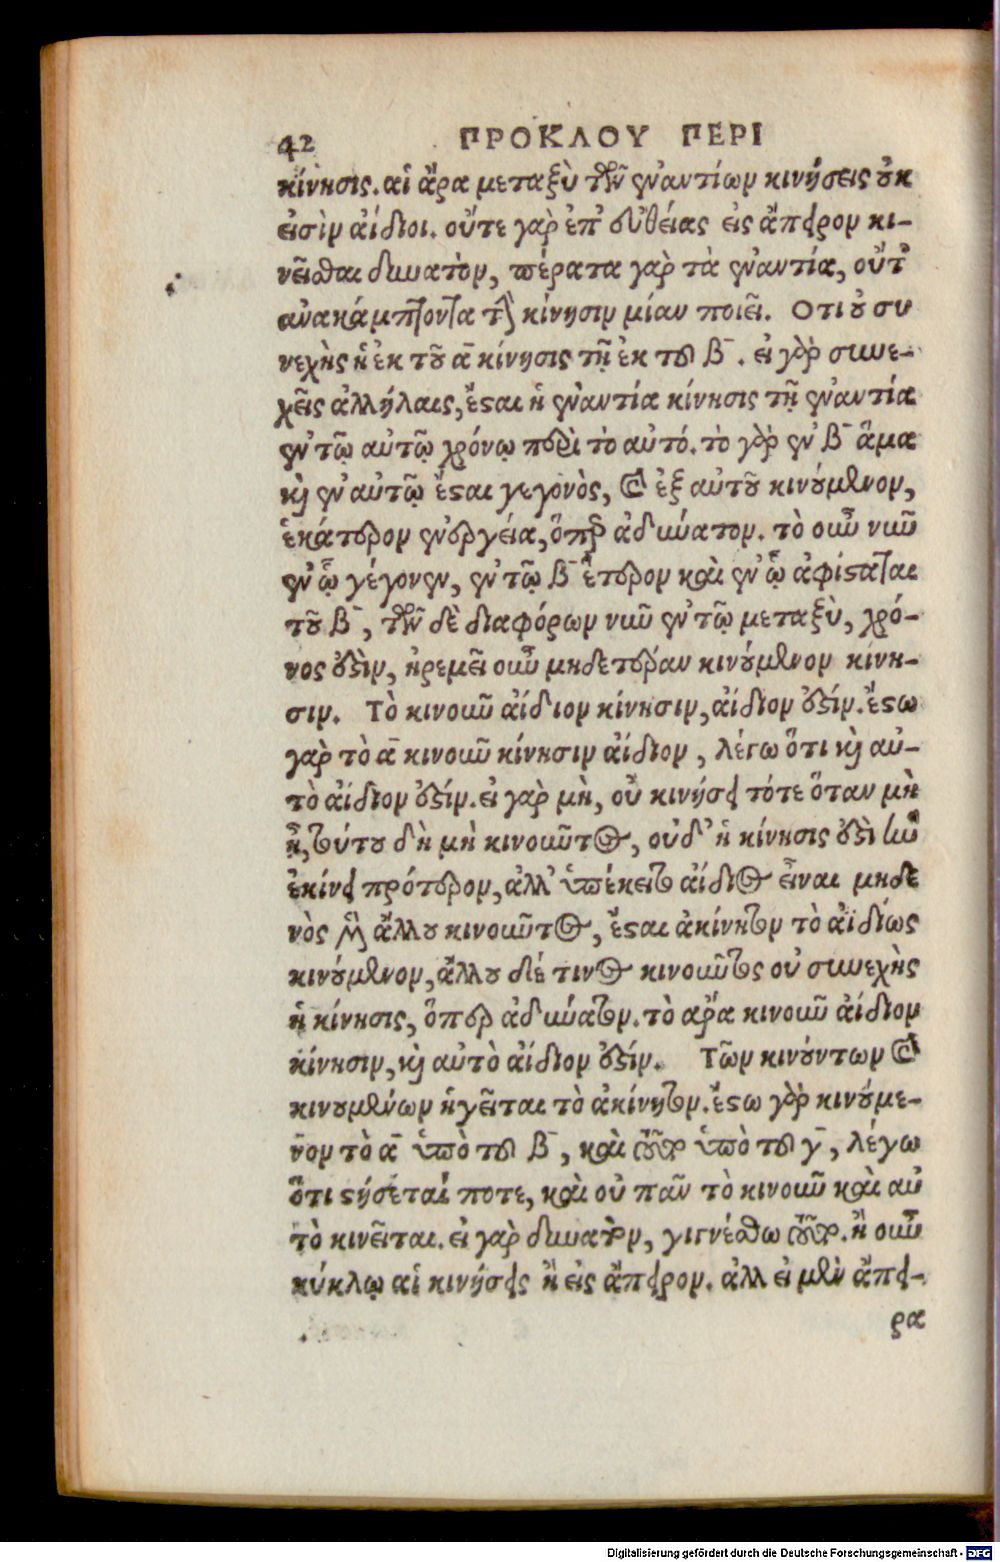 42 ΠΡΟΚΛΟΥ ΠΕΡΙ
κίνησις. αἱ ἄρα μεταξὺ τῶν ἐναντίων κινήσεις οὐκ
εἰσὶν ἀίδιοι. οὔτε γὰρ ἐπ' εὐθείας εἰς ἄπειρον κι-
νεῖσθαι δυνατὸν, πέρατα γὰρ τὰ ἐναντία, οὔτ'
ἀνακάμπτοντα τὴν κίνησιν μίαν ποιεῖ. Οτι οὐ συ
νεχὴς ἡ ἐκ τοῦ α κίνησις τῇ ἐκ του β. εἰ γὰρ συνε-
χεῖς ἀλλήλαις, ἔσται ἡ ἐναντία κίνησις τῇ ἐναντία
ἐν τῷ αὐτῷ χρόνῳ περὶ τὸ αὐτό. τὸ γὰρ ἐν β ἅμα
καὶ ἐν αὐτῷ ἔσται γεγονὸς, καὶ ἐξ αὐτοῦ κινούμενον,
ἑκάτερον ἐνεργείᾳ, ὅπερ ἀδύνατον. τὸ οὖν νῦν
ἐν ᾧ γέγονεν, ἐν τῷ β ἕτερον καὶ ἐν ᾧ ἀφίσταται
τοῦ β, τῶν δὲ διαφόρων νῦν ἐν τῷ μεταξὺ, χρό-
νος ἐστὶν, ἠρεμεῖ οὖν μηδετέραν κινούμενον κίνη-
σιν. Τὸ κινοῦν ἀίδιον κίνησιν, ἀίδιον ἐστίν. ἔστω
γὰρ τὸ α κινοῦν κίνησιν ἀίδιον, λέγω ὅτι καὶ αὐ-
τὸ ἀίδιον ἐστίν. εἰ γὰρ μὴ, οὐ κινήσει τότε ὅταν μὴ
ᾖ, τούτου δὴ μὴ κινοῦντος, οὐδ' ἡ κίνησις ἐστὶ ἣν
ἐκίνει πρότερον, ἀλλ' ὑπέκειτο ἀίδιος εἶναι μηδε
νὸς δὲ ἄλλου κινοῦντος, ἔσται ἀκίνητον τὸ ἀϊδίως
κινούμενον, ἄλλου δέ τινος κινοῦντος οὐ συνεχὴς
ἡ κίνησις, ὅπερ ἀδύνατον. τὸ ἄρα κινοῦν ἀίδιον
κίνησιν, καὶ αὐτὸ ἀίδιον ἐστίν. Τῶν κινούντων καὶ
κινουμένων ἡγεῖται τὸ ἀκίνητον. ἔστω γὰρ κινούμε-
νον τὸ α ὑπὸ του β, καὶ τοῦτο ὑπὸ του γ, λέγω
ὅτι στήσεταί ποτε, καὶ οὐ πᾶν τὸ κινοῦν καὶ αὐ
τὸ κινεῖται. εἰ γὰρ δυνατὸν, γιγνέσθω τοῦτο. ἢ οὖν
κύκλῳ αἱ κινήσεις ἢ εἰς ἄπειρον. ἀλλ εἰ μὲν ἄπει-
ρα
Digitalisierung gefördert durch die Deutsche Forschungsgemeinschaft - DFG